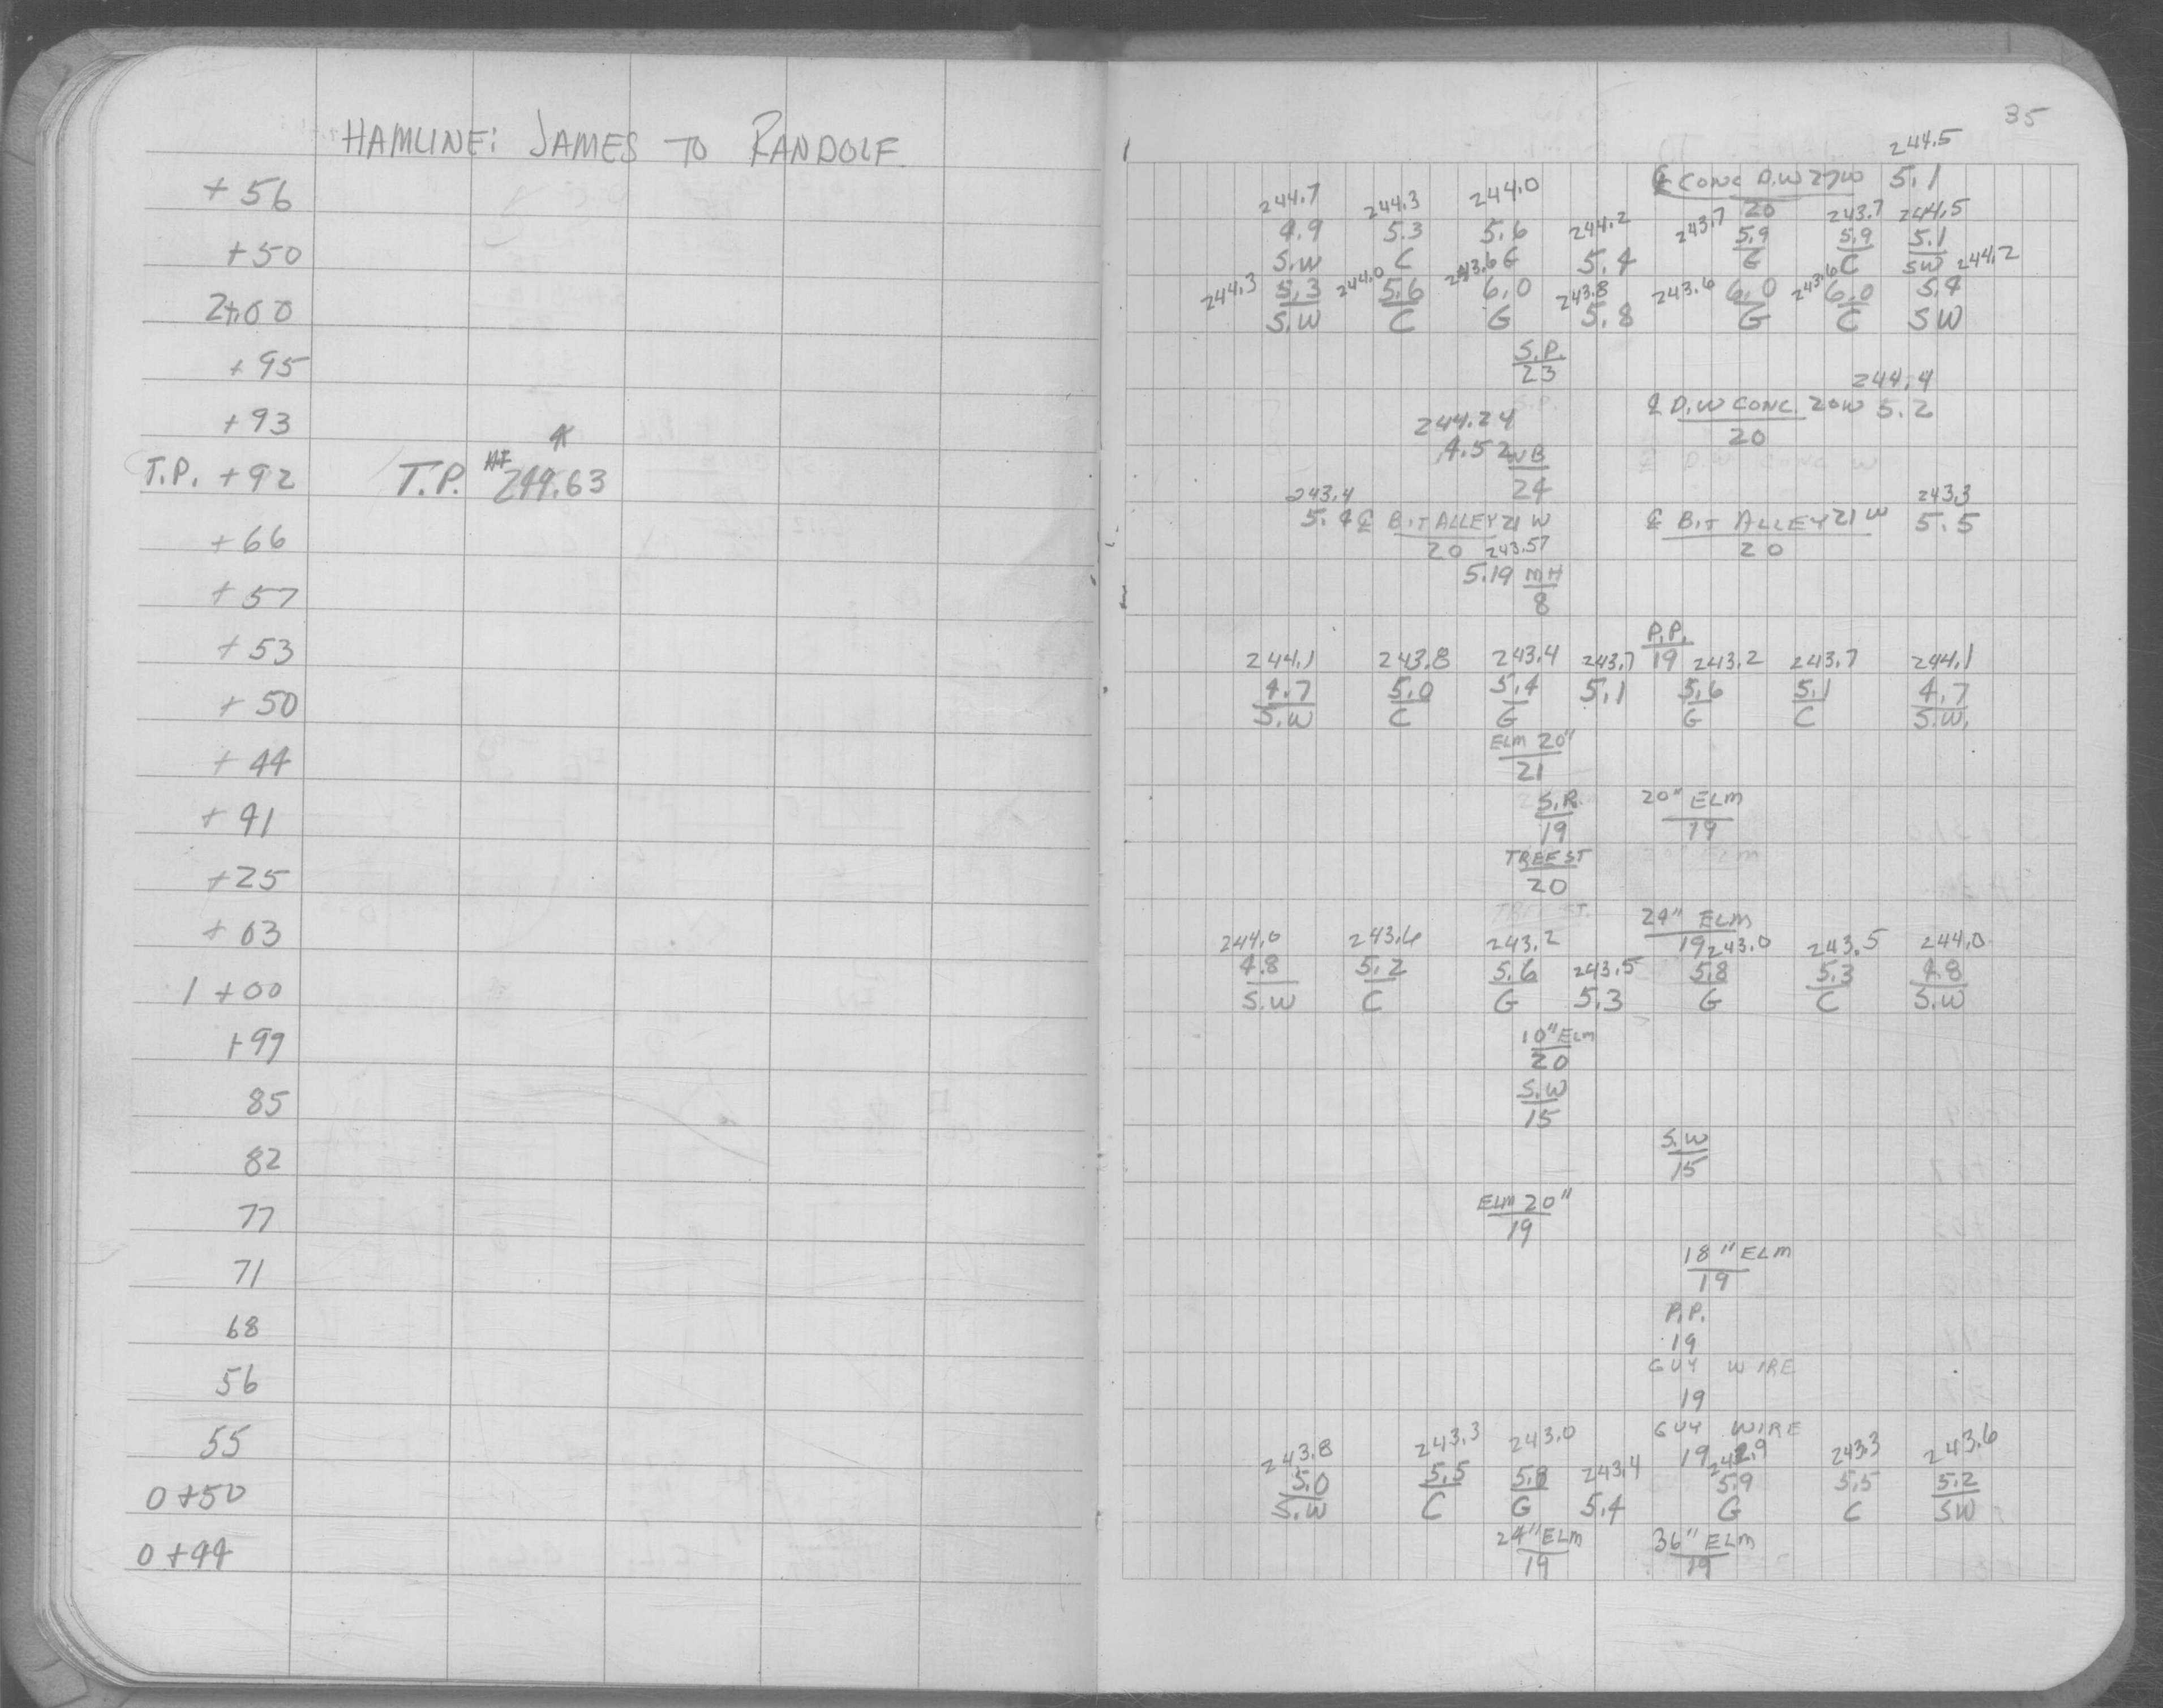 35
HAMLINE: JAMES TO RANDOLF
244.5
+56 ℄ CONC D.W 27W 5.1
20
244.7 244.3 244.0 244.2 243.7 243.7 244.5
4.9 5.3 5.6 5.9 5.9 5.1
+50 S.W C G 5.4 G C SW
244.3 244.0 243.6 243.8 243.6 243.6 244.2
5.3 5.6 6.0 6.0 6.0 5.4
2+00 S.W C G 5.8 G C SW
+95 S.P.
23
244.4
+93 ℄ D.W CONC. 20W 5.2
20
244.24
4.52
T.P. +92 T.P. HI 249.63 WB
24
243.4 243.3
+66 5.4 ℄ BIT ALLEY 21 W ℄ BIT ALLEY 21 W 5.5
20 20
243.57
+57 5.19 MH
8
+53 P.P.
19
244.1 243.8 243.4 243.7 243.2 243.7 244.1
4.7 5.0 5.4 5.1 5.6 5.1 4.7
+50 S.W C G G C S.W.
+44 ELM 20"
21
+41 S.P. 20" ELM
19 19
+25 TREE ST
20
+03 24" ELM
19
244.0 243.6 243.2 243.5 243.0 243.5 244.0
4.8 5.2 5.6 5.8 5.3 4.8
1+00 S.W C G 5.3 G C S.W
+99 10" ELM
20
85 S.W
15
82 S.W
15
77 ELM 20"
19
71 18" ELM
19
68 P.P.
19
56 GUY WIRE
19
55 GUY WIRE
19
243.8 243.3 243.0 243.4 242.9 243.3 243.6
5.0 5.5 5.8 5.9 5.5 5.2
0+50 S.W C G 5.4 G C SW
0+44 24" ELM 36" ELM
19 19